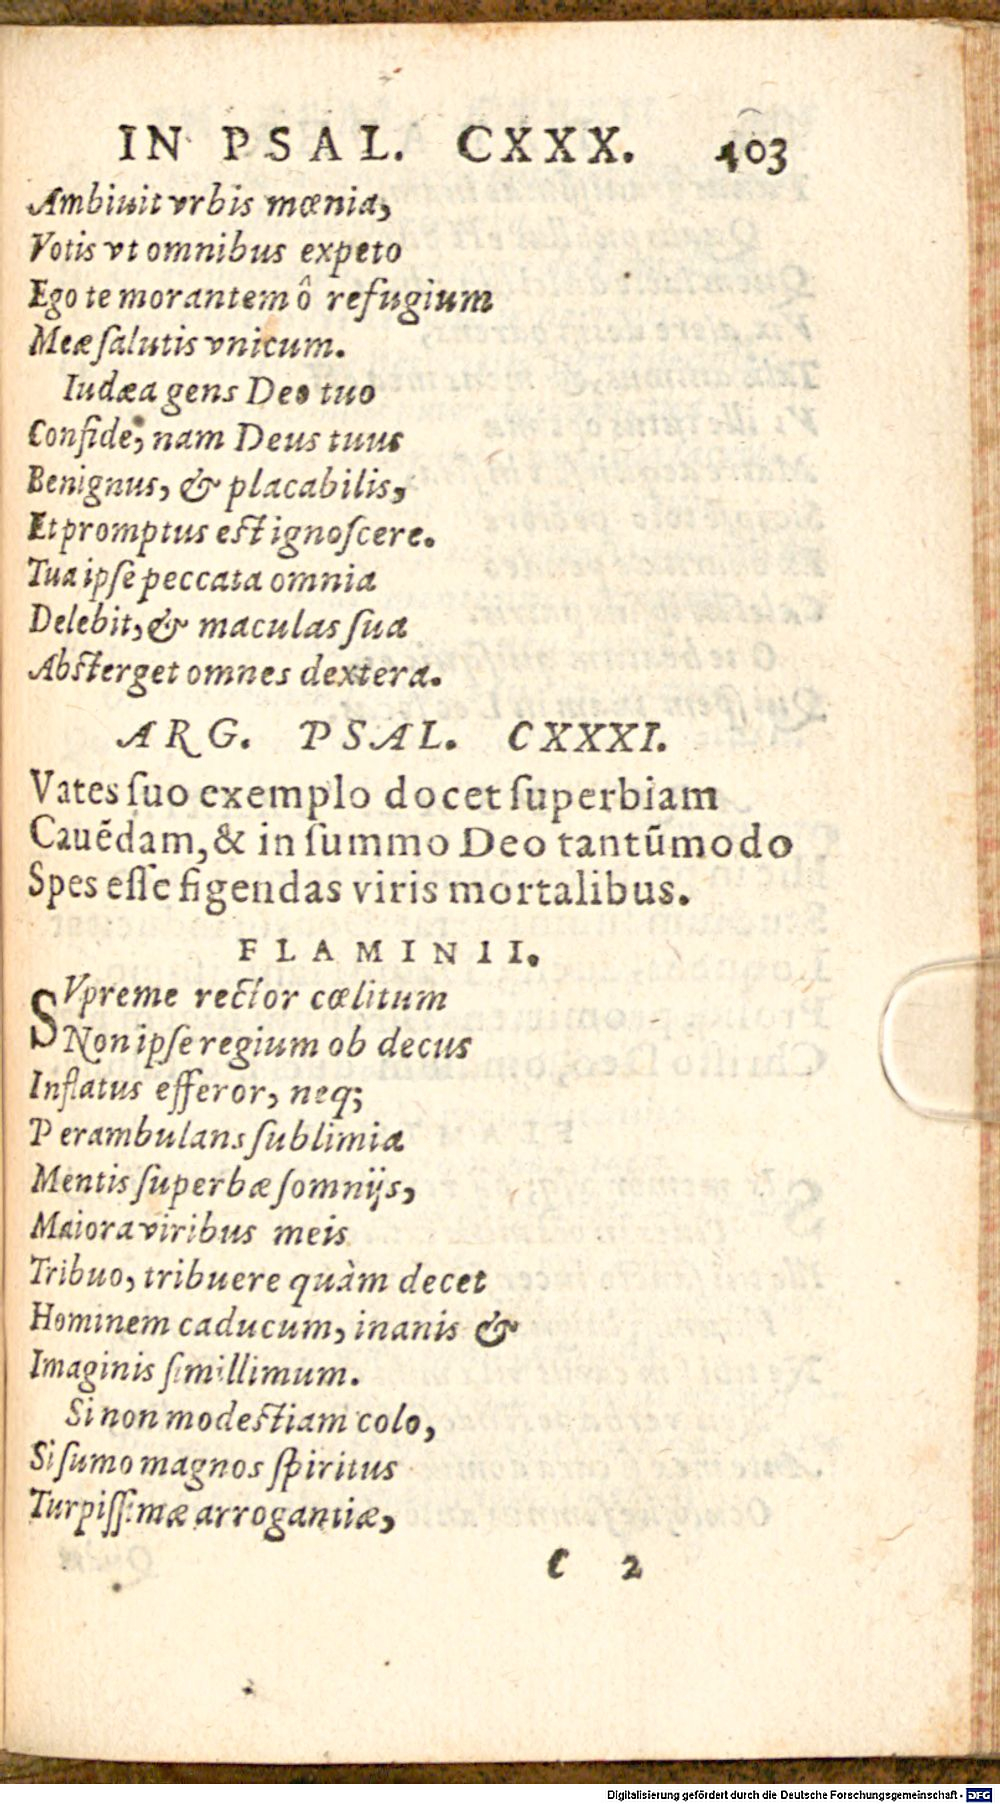 IN PSAL. CXXX. 403
Ambiuit vrbis mœnia,
Votis vt omnibus expeto
Ego te morantem ô refugium
Meæ ſalutis vnicum.
Iudæa gens Deo tuo
Confide, nam Deus tuus
Benignus, & placabilis,
Et promptus eſt ignoſcere.
Tua ipſe peccata omnia
Delebit, & maculas ſua
Abſterget omnes dextera.
ARG. PSAL. CXXXI.
Vates ſuo exemplo docet ſuperbiam
Cauẽdam, & in ſummo Deo tantũmodo
Spes eſſe figendas viris mortalibus.
FLAMINII.
SVpreme rector cœlitum
Non ipſe regium ob decus
Inflatus efferor, neq;
Perambulans ſublimia
Mentis ſuperbæ ſomnijs,
Maiora viribus meis
Tribuo, tribuere quàm decet
Hominem caducum, inanis &
Imaginis ſimillimum.
Si non modeſtiam colo,
Si ſumo magnos ſpiritus
Turpiſſimæ arrogantiæ,
C 2
Digitalisierung gefördert durch die Deutsche Forschungsgemeinschaft - DFG